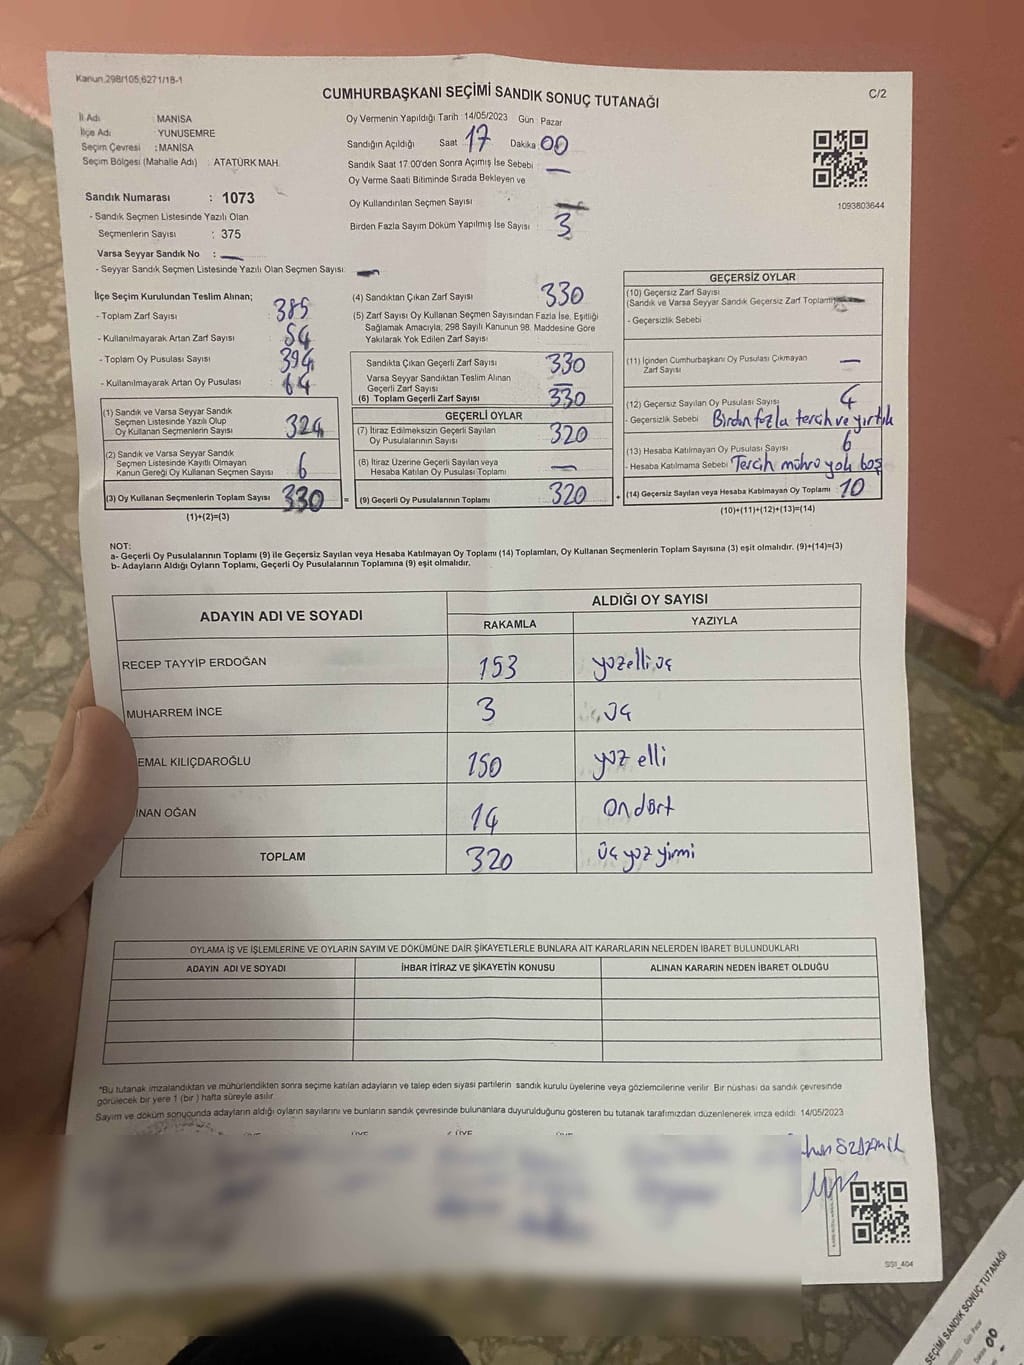 Kanun.298/105;6271/18-1
C/2
CUMHURBAŞKANI SEÇİMİ SANDIK SONUÇ TUTANAĞI
İl Adı : MANİSA
İlçe Adı : YUNUSEMRE
Seçim Çevresi : MANİSA
Seçim Bölgesi (Mahalle Adı) : ATATÜRK MAH.
Sandık Numarası : 1073
- Sandık Seçmen Listesinde Yazılı Olan
Seçmenlerin Sayısı : 375
Varsa Seyyar Sandık No :
- Seyyar Sandık Seçmen Listesinde Yazılı Olan Seçmen Sayısı:
Oy Vermenin Yapıldığı Tarih : 14/05/2023 Gün : Pazar
Sandığın Açıldığı Saat : 17 Dakika : 00
Sandık Saat 17.00'den Sonra Açılmış İse Sebebi :
Oy Verme Saati Bitiminde Sırada Bekleyen ve
Oy Kullandırılan Seçmen Sayısı
Birden Fazla Sayım Döküm Yapılmış İse Sayısı : 3
1093803644
İlçe Seçim Kurulundan Teslim Alınan;
- Toplam Zarf Sayısı : 385
- Kullanılmayarak Artan Zarf Sayısı : 54
- Toplam Oy Pusulası Sayısı : 394
- Kullanılmayarak Artan Oy Pusulası : 64
(1) Sandık ve Varsa Seyyar Sandık
Seçmen Listesinde Yazılı Olup
Oy Kullanan Seçmenlerin Sayısı : 324
(2) Sandık ve Varsa Seyyar Sandık
Seçmen Listesinde Kayıtlı Olmayan
Kanun Gereği Oy Kullanan Seçmen Sayısı : 6
(3) Oy Kullanan Seçmenlerin Toplam Sayısı : 330 =
(1)+(2)=(3)
(4) Sandıktan Çıkan Zarf Sayısı : 330
(5) Zarf Sayısı Oy Kullanan Seçmen Sayısından Fazla İse, Eşitliği
Sağlamak Amacıyla; 298 Sayılı Kanunun 98. Maddesine Göre
Yakılarak Yok Edilen Zarf Sayısı :
Sandıkta Çıkan Geçerli Zarf Sayısı : 330
Varsa Seyyar Sandıktan Teslim Alınan
Geçerli Zarf Sayısı : —
(6) Toplam Geçerli Zarf Sayısı : 330
GEÇERLİ OYLAR
(7) İtiraz Edilmeksizin Geçerli Sayılan
Oy Pusulalarının Sayısı : 320
(8) İtiraz Üzerine Geçerli Sayılan veya
Hesaba Katılan Oy Pusulası Toplamı : —
(9) Geçerli Oy Pusulalarının Toplamı : 320 +
GEÇERSİZ OYLAR
(10) Geçersiz Zarf Sayısı
(Sandık ve Varsa Seyyar Sandık Geçersiz Zarf Toplamı)
- Geçersizlik Sebebi :
(11) İçinden Cumhurbaşkanı Oy Pusulası Çıkmayan
Zarf Sayısı : —
(12) Geçersiz Sayılan Oy Pusulası Sayısı : 4
- Geçersizlik Sebebi : Birden fazla tercih ve yırtık
(13) Hesaba Katılmayan Oy Pusulası Sayısı : 6
- Hesaba Katılmama Sebebi : Tercih mührü yok boş
(14) Geçersiz Sayılan veya Hesaba Katılmayan Oy Toplamı : 10
(10)+(11)+(12)+(13)=(14)
NOT:
a- Geçerli Oy Pusulalarının Toplamı (9) ile Geçersiz Sayılan veya Hesaba Katılmayan Oy Toplamı (14) Toplamları, Oy Kullanan Seçmenlerin Toplam Sayısına (3) eşit olmalıdır. (9)+(14)=(3)
b- Adayların Aldığı Oyların Toplamı, Geçerli Oy Pusulalarının Toplamına (9) eşit olmalıdır.
ADAYIN ADI VE SOYADI
ALDIĞI OY SAYISI
RAKAMLA YAZIYLA
RECEP TAYYİP ERDOĞAN 153 yüzelli üç
MUHARREM İNCE 3 üç
EMAL KILIÇDAROĞLU 150 yüz elli
İNAN OĞAN 14 on dört
TOPLAM 320 üç yüz yirmi
OYLAMA İŞ VE İŞLEMLERİNE VE OYLARIN SAYIM VE DÖKÜMÜNE DAİR ŞİKAYETLERLE BUNLARA AİT KARARLARIN NELERDEN İBARET BULUNDUKLARI
ADAYIN ADI VE SOYADI İHBAR İTİRAZ VE ŞİKAYETİN KONUSU ALINAN KARARIN NEDEN İBARET OLDUĞU
*Bu tutanak imzalandıktan ve mühürlendikten sonra seçime katılan adayların ve talep eden siyasi partilerin sandık kurulu üyelerine veya gözlemcilerine verilir. Bir nüshası da sandık çevresinde
görülecek bir yere 1 (bir) hafta süreyle asılır.
Sayım ve döküm sonucunda adayların aldığı oyların sayılarını ve bunların sandık çevresinde bulunanlara duyurulduğunu gösteren bu tutanak tarafımızdan düzenlenerek imza edildi. 14/05/2023
SSI_404
SEÇİMİ SANDIK SONUÇ TUTANAĞI
Gün : Pazar
Dakika : 00